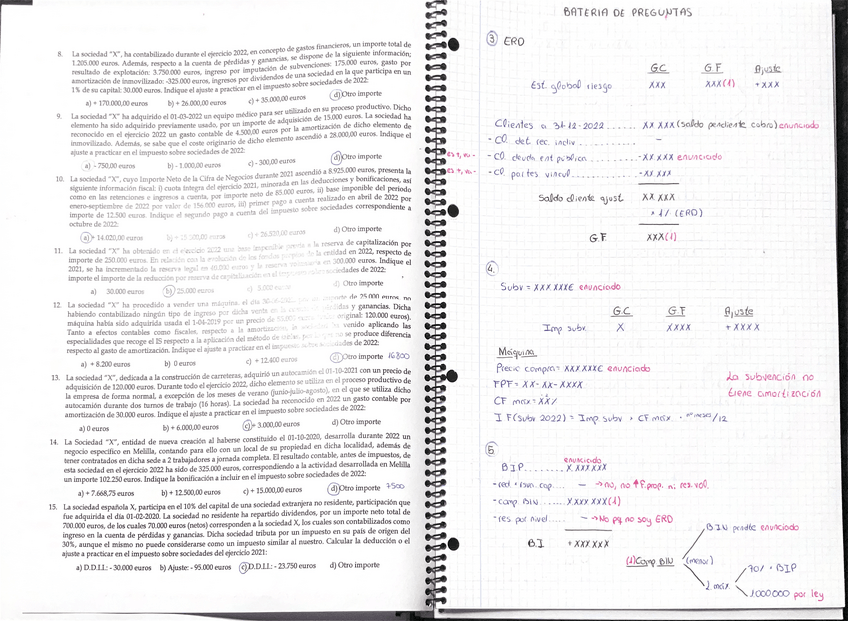 8. La sociedad "X", ha contabilizado durante el ejercicio 2022, en concepto de gastos financieros, un importe total de
1.205.000 euros. Además, respecto a la cuenta de pérdidas y ganancias, se dispone de la siguiente información;
resultado de explotación: 3.750.000 euros, ingreso por imputación de subvenciones: 175.000 euros, gasto por
amortización de inmovilizado: -325.000 euros, ingresos por dividendos de una sociedad en la que participa en un
1% de su capital: 30.000 euros. Indique el ajuste a practicar en el impuesto sobre sociedades de 2022:
a) + 170.000,00 euros b) + 26.000,00 euros c) + 35.000,00 euros d) Otro importe
9. La sociedad "X" ha adquirido el 01-03-2022 un equipo médico para ser utilizado en su proceso productivo. Dicho
elemento ha sido adquirido previamente usado, por un importe de adquisición de 15.000 euros. La sociedad ha
reconocido en el ejercicio 2022 un gasto contable de 4.500,00 euros por la amortización de dicho elemento de
inmovilizado. Además, se sabe que el coste originario de dicho elemento ascendió a 28.000,00 euros. Indique el
ajuste a practicar en el impuesto sobre sociedades de 2022:
a) - 750,00 euros b) - 1.000,00 euros c) - 300,00 euros d) Otro importe
10. La sociedad "X", cuyo Importe Neto de la Cifra de Negocios durante 2021 ascendió a 8.925.000 euros, presenta la
siguiente información fiscal: i) cuota íntegra del ejercicio 2021, minorada en las deducciones y bonificaciones, así
como en las retenciones e ingresos a cuenta, por importe neto de 85.000 euros, ii) base imponible del periodo
enero-septiembre de 2022 por valor de 156.000 euros, iii) primer pago a cuenta realizado en abril de 2022 por
importe de 12.500 euros. Indique el segundo pago a cuenta del impuesto sobre sociedades correspondiente a
octubre de 2022:
a) + 14.020,00 euros c) + 26.520,00 euros d) Otro importe
11. La sociedad "X" ha obtenido en el ejercicio 2022 una base imponible previa a la reserva de capitalización por
importe de 250.000 euros. En relación con la evolución de los fondos propios de la entidad en 2022, respecto de
2021, se ha incrementado la reserva legal en 40.000 euros y la reserva voluntaria en 300.000 euros. Indique el
importe el importe de la reducción por reserva de capitalización en el impuesto sobre sociedades de 2022:
a) 30.000 euros b) 25.000 euros c) 5.000 euros d) Otro importe
12. La sociedad "X" ha procedido a vender una máquina, el día por un importe de 25.000 euros, no
habiendo contabilizado ningún tipo de ingreso por dicha venta en la cuenta de pérdidas y ganancias. Dicha
máquina había sido adquirida usada el 1-04-2019 por un precio de original: 120.000 euros).
Tanto a efectos contables como fiscales, respecto a la amortización, la sociedad ha venido aplicando las
especialidades que recoge el IS respecto a la aplicación del método de no se produce diferencia
respecto al gasto de amortización. Indique el ajuste a practicar en el impuesto sobre sociedades de 2022:
a) + 8.200 euros b) 0 euros c) + 12.400 euros d) Otro importe 16800
13. La sociedad "X", dedicada a la construcción de carreteras, adquirió un autocamión el 01-10-2021 con un precio de
adquisición de 120.000 euros. Durante todo el ejercicio 2022, dicho elemento se utiliza en el proceso productivo de
la empresa de forma normal, a excepción de los meses de verano (junio-julio-agosto), en el que se utiliza dicho
autocamión durante dos turnos de trabajo (16 horas). La sociedad ha reconocido en 2022 un gasto contable por
amortización de 30.000 euros. Indique el ajuste a practicar en el impuesto sobre sociedades de 2022:
a) 0 euros b) + 6.000,00 euros c) + 3.000,00 euros d) Otro importe
14. La Sociedad "X", entidad de nueva creación al haberse constituido el 01-10-2020, desarrolla durante 2022 un
negocio específico en Melilla, contando para ello con un local de su propiedad en dicha localidad, además de
tener contratados en dicha sede a 2 trabajadores a jornada completa. El resultado contable, antes de impuestos, de
esta sociedad en el ejercicio 2022 ha sido de 325.000 euros, correspondiendo a la actividad desarrollada en Melilla
un importe 102.250 euros. Indique la bonificación a incluir en el impuesto sobre sociedades de 2022:
a) + 7.668,75 euros b) + 12.500,00 euros c) + 15.000,00 euros d) Otro importe 7500
15. La sociedad española X, participa en el 10% del capital de una sociedad extranjera no residente, participación que
fue adquirida el día 01-02-2020. La sociedad no residente ha repartido dividendos, por un importe neto total de
700.000 euros, de los cuales 70.000 euros (netos) corresponden a la sociedad X, los cuales son contabilizados como
ingreso en la cuenta de pérdidas y ganancias. Dicha sociedad tributa por un impuesto en su país de origen del
30%, aunque el mismo no puede considerarse como un impuesto similar al nuestro. Calcular la deducción o el
ajuste a practicar en el impuesto sobre sociedades del ejercicio 2021:
a) D.D.I.I.: - 30.000 euros b) Ajuste: - 95.000 euros c) D.D.I.I.: - 23.750 euros d) Otro importe
BATERIA DE PREGUNTAS
3 ERD
G.C G.F Ajuste
Est. global riesgo XXX XXX(1) + XXX
Clientes a 31-12-2022 ....... XX XXX (saldo pendiente cobro) enunciado
- Cl. det. rec. indiv ..............
- Cl. deuda ent publica ........... -XX XXX enunciado
- Cl. partes vincul ............ -XX XXX
Saldo cliente ajust. XX XXX
× 1% (ERD)
G.F. XXX(1)
4.
Subv = XXX XXX€ enunciado
G.C G.F Ajuste
Imp subv. X XXXX + XXXX
Máquina
Precio compra = XXX XXX€ enunciado
FPF = XX-XX-XXXX
CF max = XX%
I F (Subv 2022) = Imp. subv × CF máx · nº meses/12
La subvención no
tiene amortización
5
enunciado
B.I.P ......... X XXX XXX
- red. rsva. cap.... → no, no ↑ F. prop. ni res. vol.
- comp. BIN ..... X XXX XXX (1)
- res por nivel ..... → No pq no soy ERD
B.I + XXX XXX
(1) Comp BIN (menor)
BIN pendte enunciado
L máx
70% × BIP
1.000.000 por ley